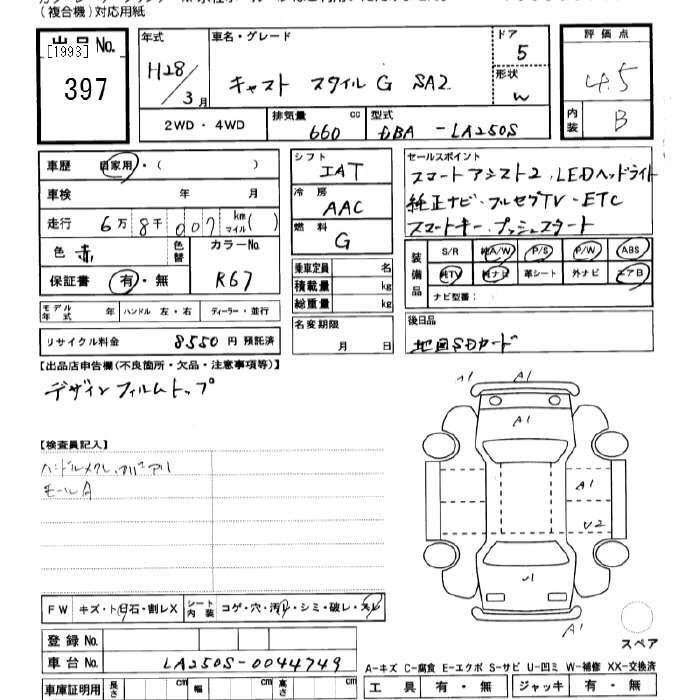 (複合機)対応用紙
出品No.
[1993]
397
年式
H28/3月
車名・グレード
キャスト スタイルG SA2
ドア
5
形状
W
評価点
4.5
内装
B
2WD・4WD
排気量 660 cc
型式
DBA - LA250S
車歴 自家用・( )
車検 年 月
走行 6万8千007 km マイル( )
色 赤
色替
カラーNo.
R67
保証書 有・無
シフト
IAT
冷房
AAC
燃料
G
乗車定員 名
積載量 kg
総重量 kg
セールスポイント
スマートアシスト2 LEDヘッドライト
純正ナビ・フルセグTV・ETC
スマートキー・プッシュスタート
装備品
S/R 純A/W P/S P/W ABS
純TV 純ナビ 革シート 外ナビ エアB
ナビ型番:
モデル年式 年 ハンドル 左・右 ディーラー・並行
リサイクル料金 8550円 預託済
名変期限
月 日
後日品
地図SDカード
【出品店申告欄(不良箇所・欠品・注意事項等)】
デザインフィルムトップ
【検査員記入】
モールA
A1
A1
A1
A1
U2
A1
FW キズ・ト・石・割レX
シート内装 コゲ・穴・汚レ・シミ・破レ・スレ
スペア
登録No.
車台No. LA250S-0044749
A-キズ C-腐食 E-エクボ S-サビ U-凹ミ W-補修 XX-交換済
車庫証明用 長さ cm 幅 cm 高さ cm
工具 有・無 ジャッキ 有・無